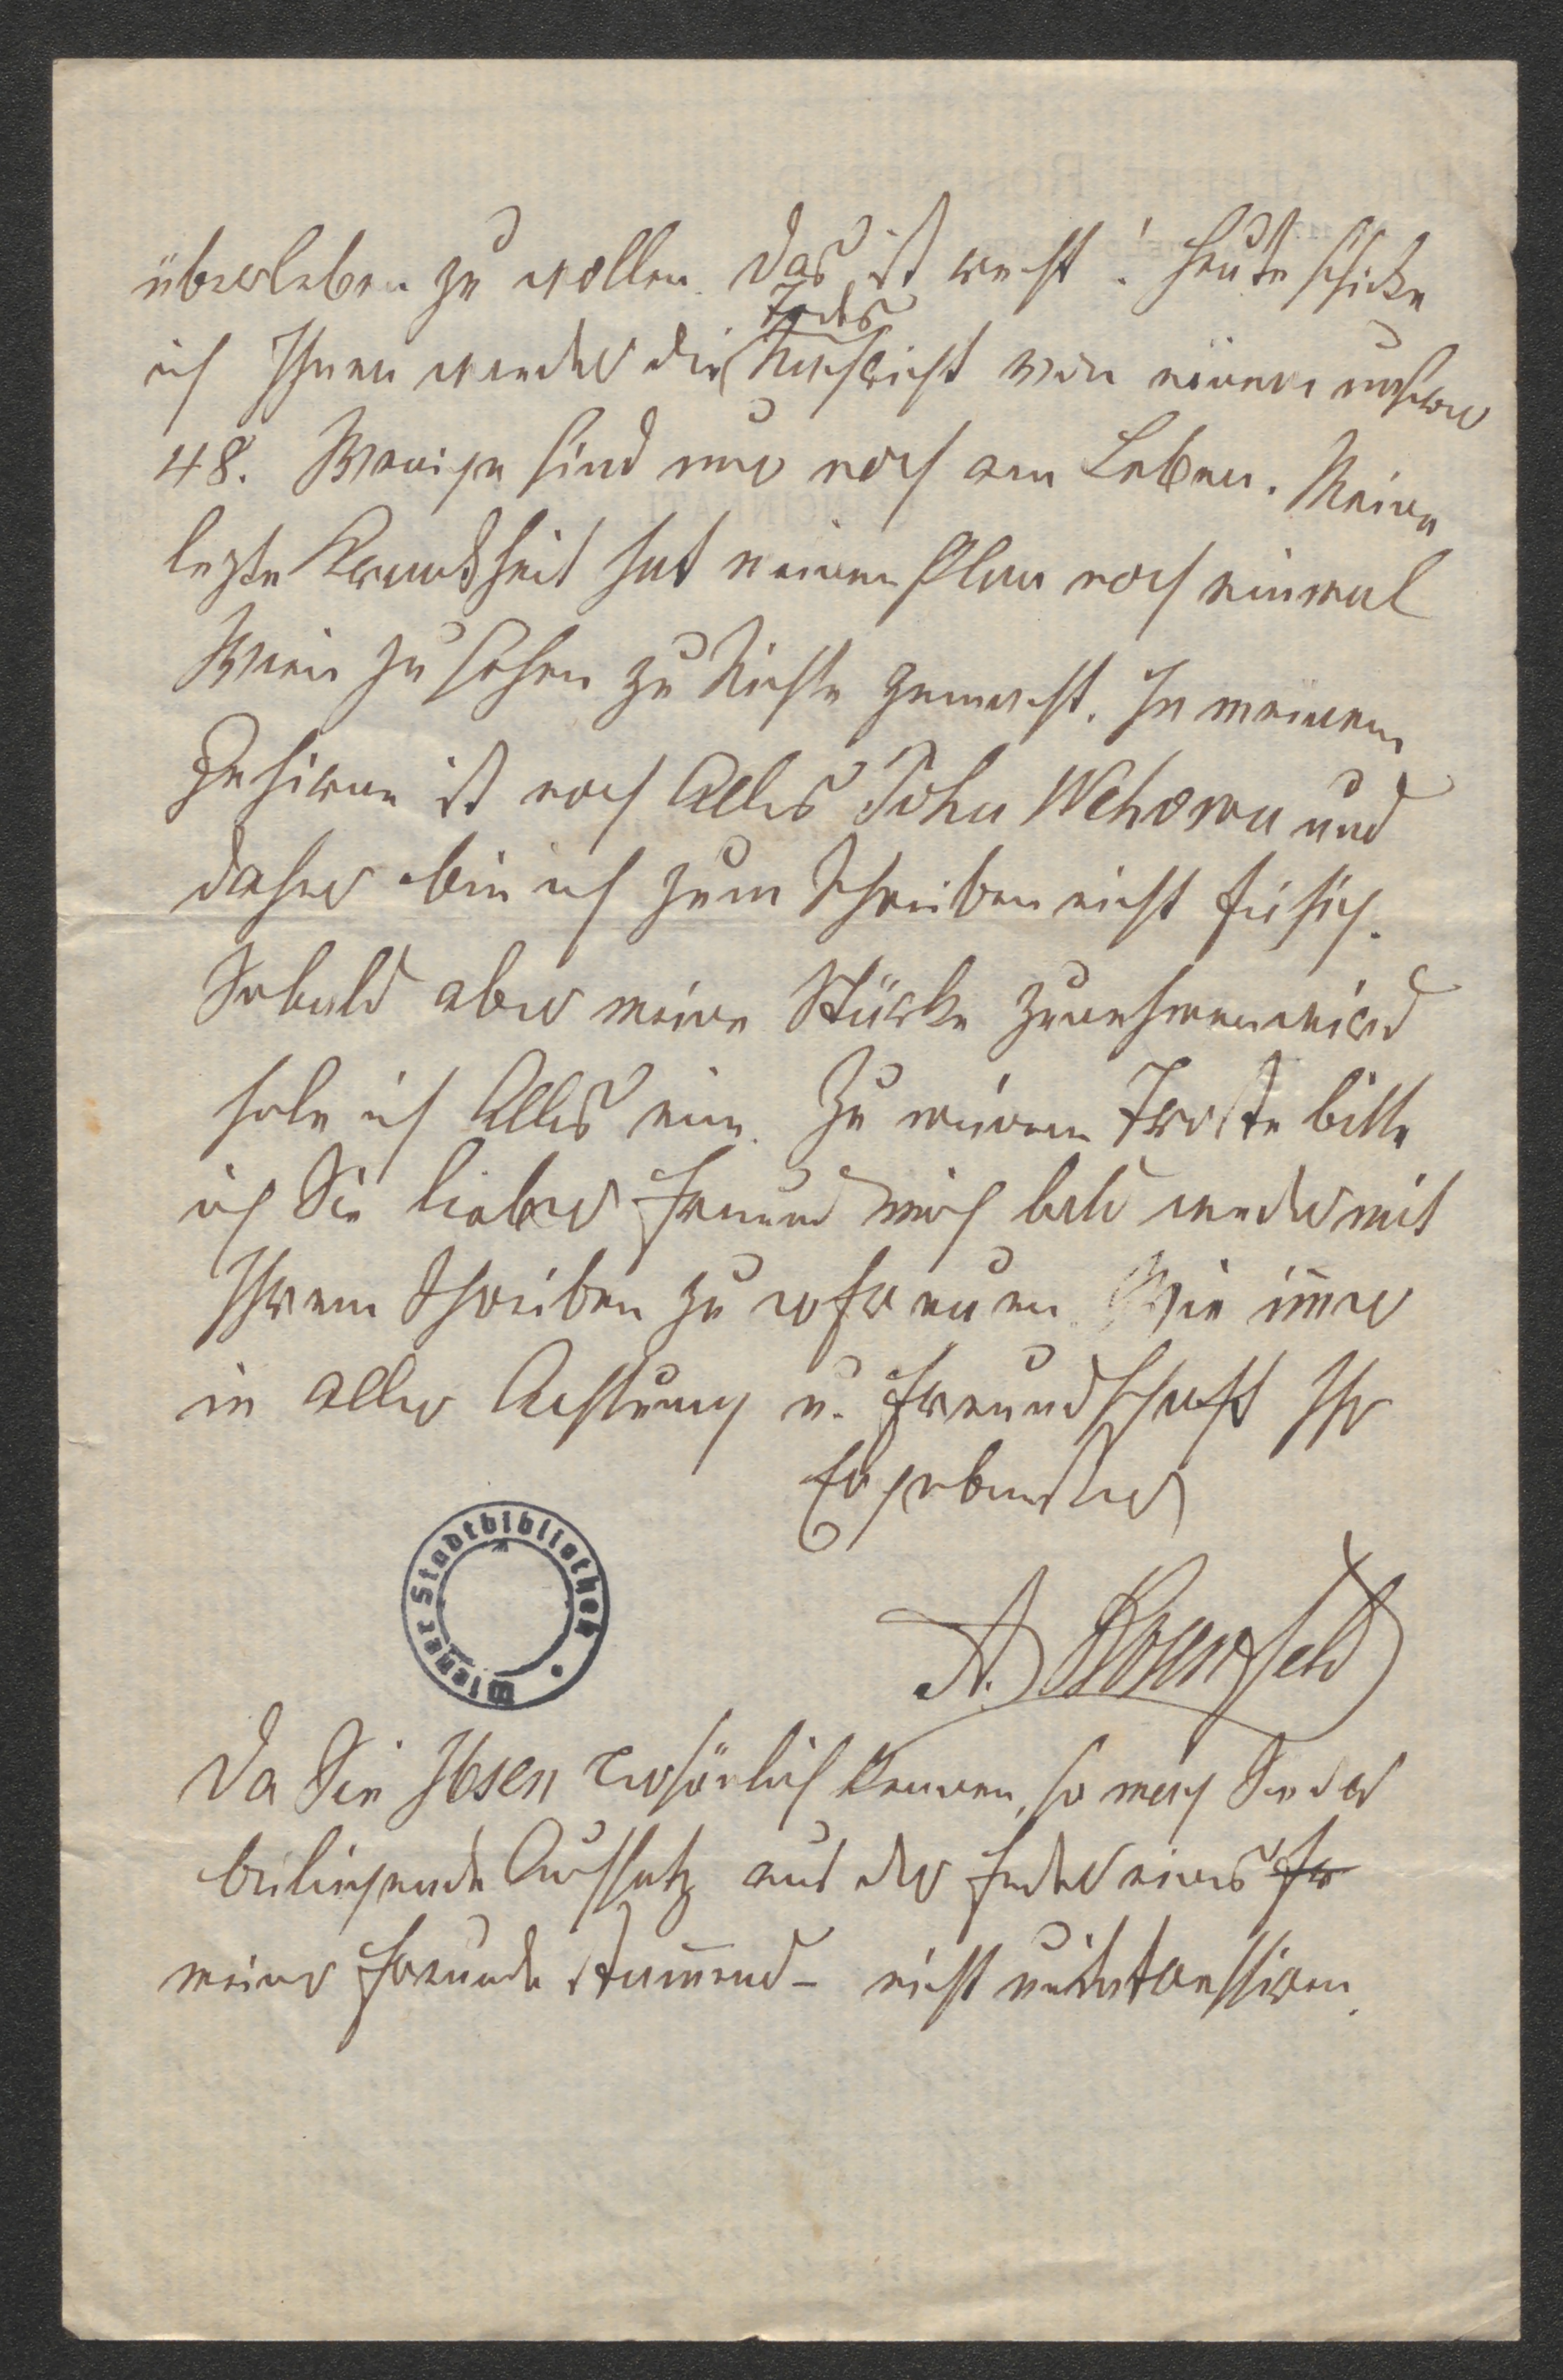 überleben zu wollen. Das ist recht! Heute schicke
Todes
ich Ihnen wieder die Nachricht von einem unserer
48. Wenige sind nur noch am Leben. Meine
lezte Krankheit hat meinen Plan noch einmal
Wien zu sehen zu Nichte gemacht. In meinem
Gehirne ist noch Alles Tohu Wehowu und
daher bin ich zum Schreiben nicht fähig.
Sobald aber meine Stärke zunehmen wird
hole ich Alles ein. Zu meinem Troste bitte
ich Sie lieber Freund mich bald wieder mit
Ihrem Schreiben zu erfreuen. Wie im̄er
in aller Achtung u. Freundschaft Ihr
Ergebenster
A. Rosenfeld
Wiener Stadtbibliothek
Da Sie Ibsen persönlich kennen, so mag Sie der
beiliegende Aufsatz aus der Feder eines Fr
meiner Freunde stam̄end – nicht uninteressiren.